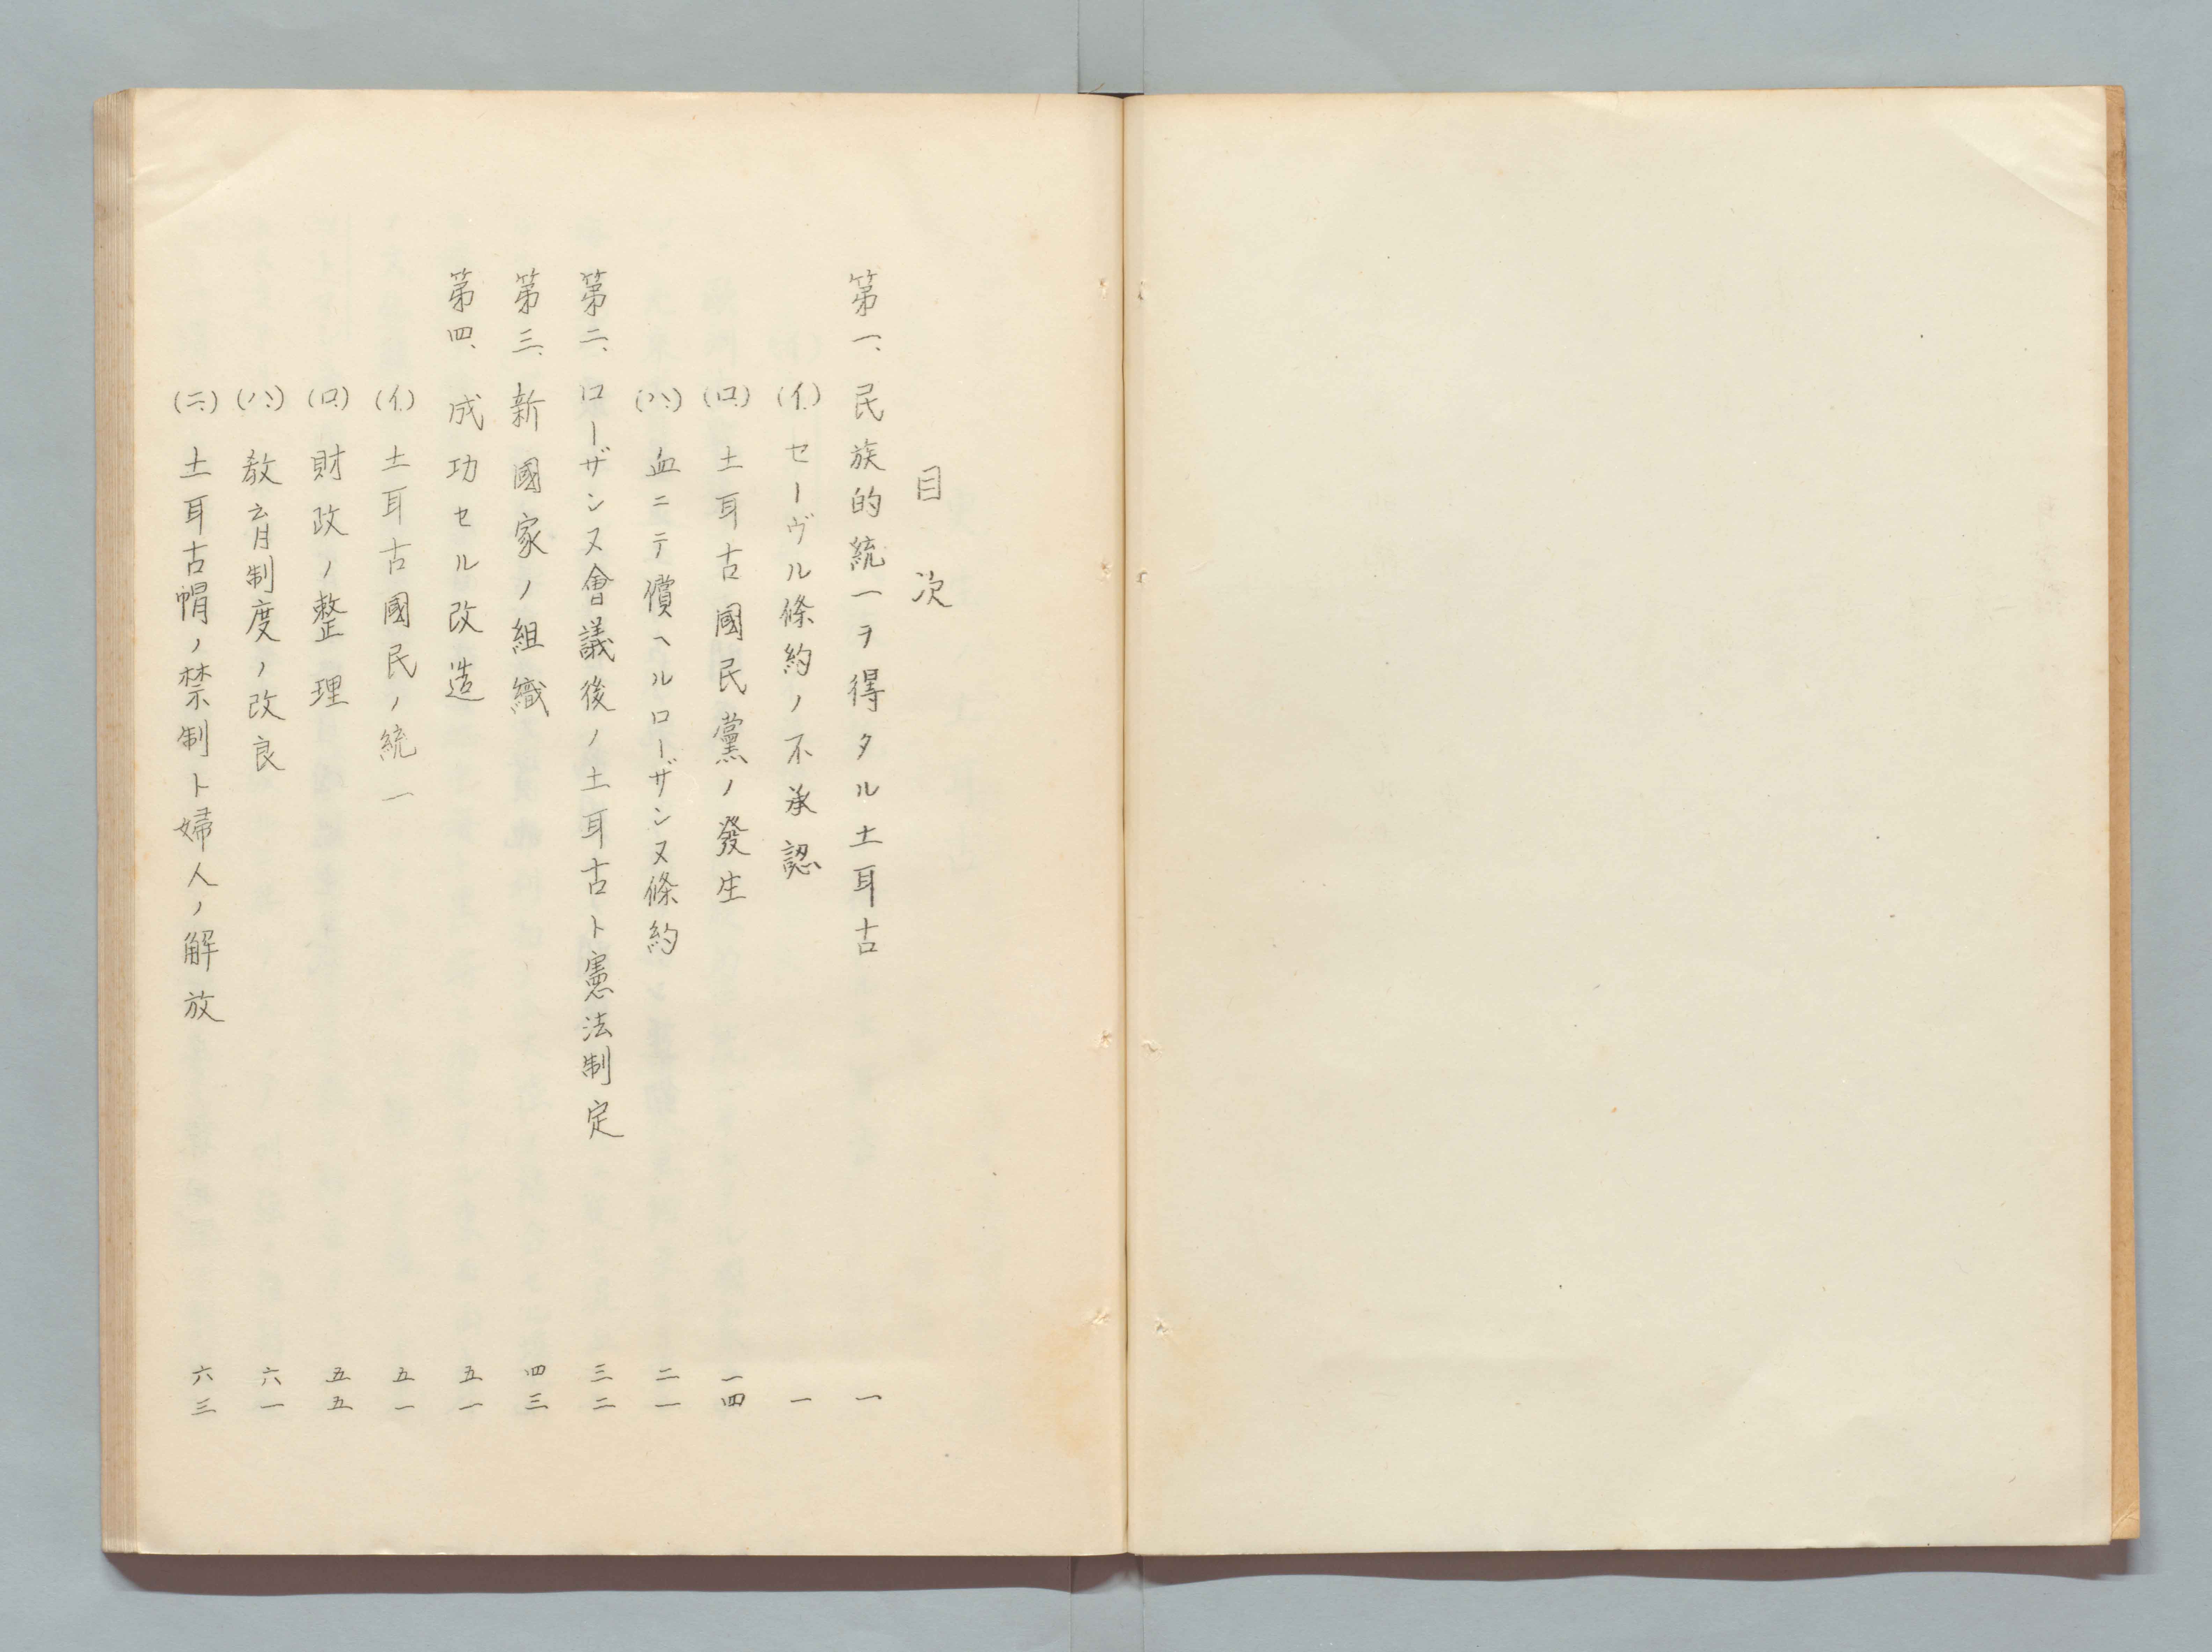 目次
第一、民族的統一ヲ得タル土耳古 一
(イ)セーヴル條約ノ不承認 一
(ロ)土耳古國民黨ノ發生 一四
(ハ)血ニテ償ヘルローザンヌ條約 二一
第二、ローザンヌ會議後ノ土耳古ト憲法制定 三二
第三、新國家ノ組織 四三
第四、成功セル改造 五一
(イ)土耳古國民ノ統一 五一
(ロ)財政ノ整理 五五
(ハ)教育制度ノ改良 六一
(ニ)土耳古帽ノ禁制ト婦人ノ解放 六三